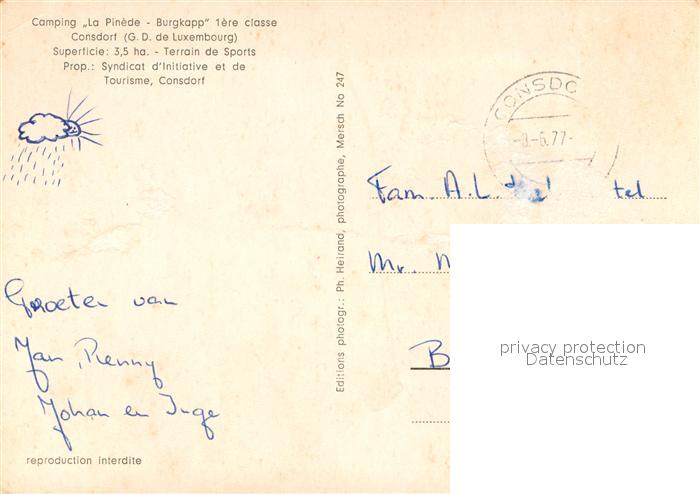 Camping „La Pinède - Burgkapp" 1ère classe
Consdorf (G. D. de Luxembourg)
Superficie: 3,5 ha. - Terrain de Sports
Prop.: Syndicat d'Initiative et de
Tourisme, Consdorf
Groeten van
Jan, Renny
Johan en Inge
reproduction interdite
Editions photogr.: Ph. Heirand, photographe, Mersch No 247
CONSDO
-8.-6.77-
Fam. A.L. tel
Mr.
B
privacy protection
Datenschutz